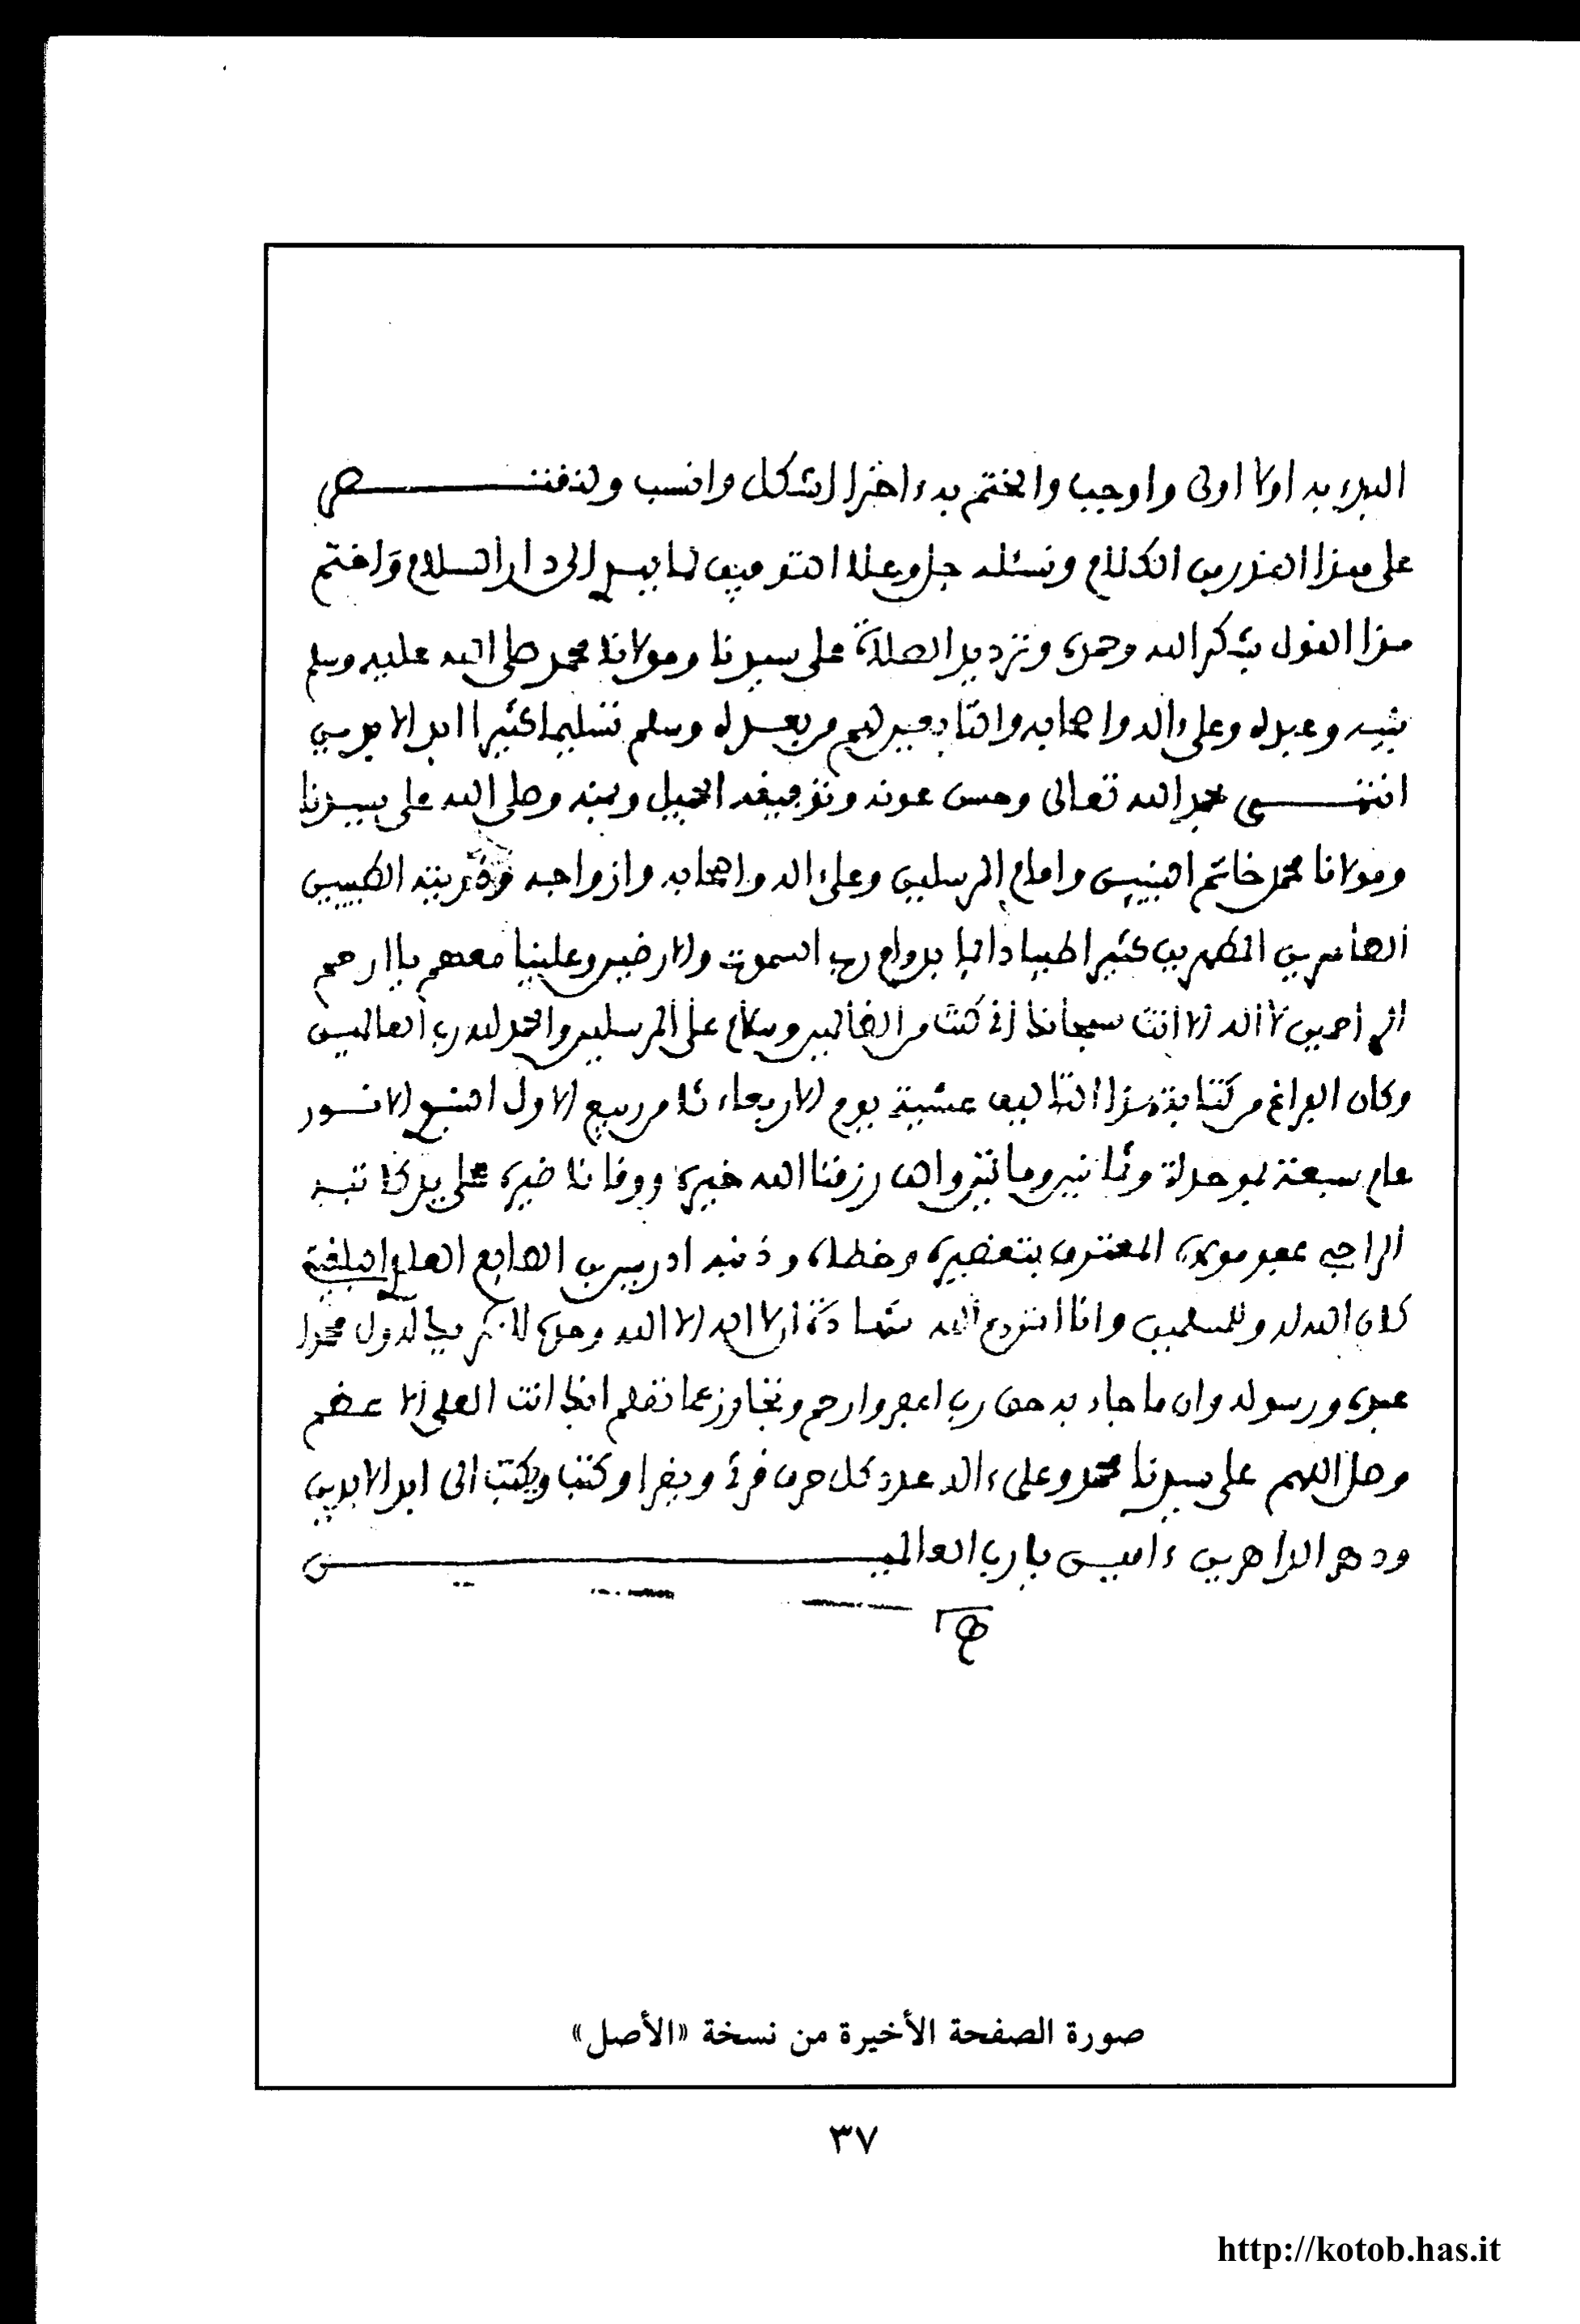 البدء به اولا اولى واوجب والختم به ءاخرا اشكل وانسب ولنقتصر
على هذا القدر من الكلام ونسئله جل وعلا التوفيق لما يبلغ الى دار السلام واختم
هذا القول بذكر الله وحمده وترديد الصلاة على سيدنا ومولانا محمد صلى الله عليه وسلم
نبيه وعبده وعلى ءاله واصحابه والتابعين لهم من بعده وسلم تسليما كثيرا ابد الابدين
انتهى بحمد الله تعالى وحسن عونه وتوفيقه الجميل ويمنه وصلى الله على سيدنا
ومولانا محمد خاتم النبيين وامام المرسلين وعلى ءاله واصحابه وازواجه وذريته الطيبين
الطاهرين المطهرين كثيرا طيبا دائما بدوام رب السموت والارضين وعلينا معهم يا ارحم
الراحمين لا اله الا انت سبحانك اني كنت من الظالمين وسلام على المرسلين والحمد لله رب العالمين
وكان الفراغ من كتابة هذا التاليف عشية يوم الاربعاء من ربيع الاول النبوي الانور
عام سبعة بموحدة وثمانين ومائتين والف رزقنا الله خيره ووقانا ضيره على يد كاتبه
الراجي عفو مولاه المعترف بتقصيره وخطاه وذنبه ادريس بن الطايع العلمي
كان الله له وللمسلمين وانا استودع الله شهادة ان لا اله الا الله وحده لا شريك له وان محمدا
عبده ورسوله وان ما جاء به حق رب اغفر وارحم وتجاوز عما تعلم انك انت العلي الاعظم
وصل اللهم على سيدنا محمد وعلى ءاله عدد كل حرف قرئ ويقرا وكتب ويكتب الى ابد الابدين
ودهر الداهرين ءامين يا رب العالمين
صورة الصفحة الأخيرة من نسخة «الأصل»
٣٧
http://kotob.has.it